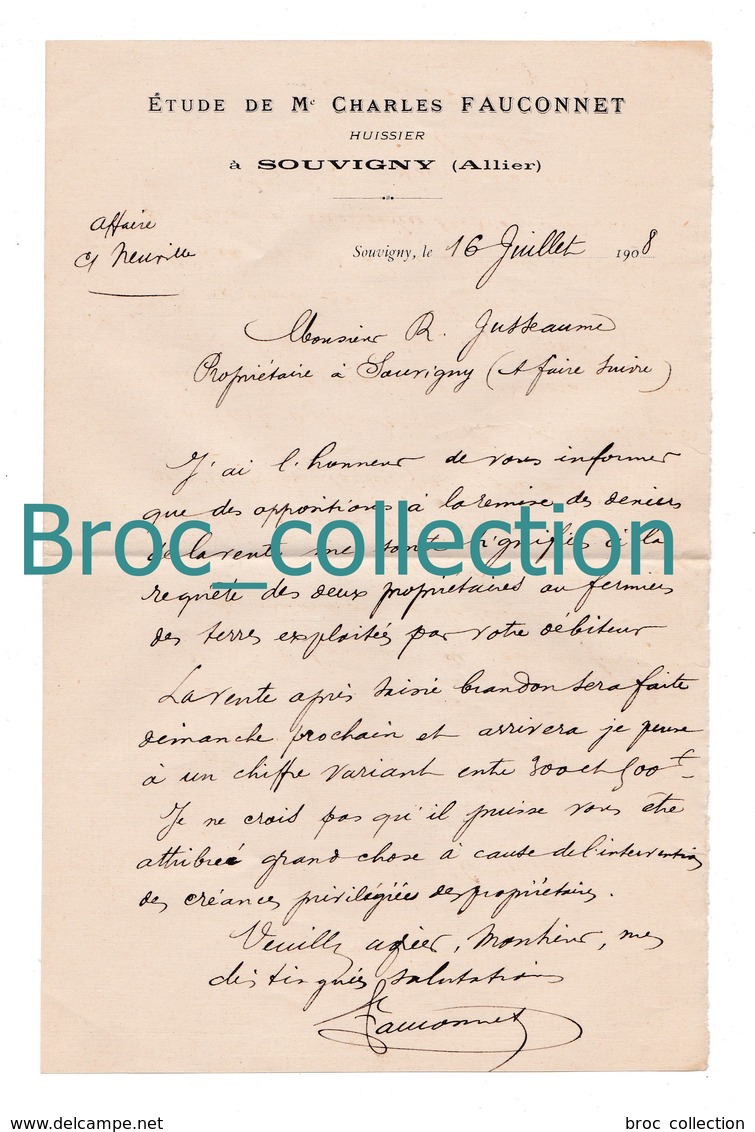 ÉTUDE DE Me CHARLES FAUCONNET
HUISSIER
à SOUVIGNY (Allier)
Affaire
c/ Neuville
Souvigny, le 16 Juillet 1908
Monsieur R. Jusseaume
Propriétaire à Souvigny (A faire suivre)
J'ai l'honneur de vous informer
que des oppositions à la remise des deniers
de la vente me sont signifiés à la
requête des deux propriétaires ou fermiers
des terres exploitées par votre débiteur
La vente après saisie brandon sera faite
dimanche prochain et arrivera je pense
à un chiffre variant entre 300 et 500 f
Je ne crois pas qu'il puisse vous être
attribué grand chose à cause de l'intervention
des créances privilégiées des propriétaires.
Veuillez agréer, Monsieur, mes
distingués salutations
Fauconnet
Broc_collection
www.delcampe.net
broc collection